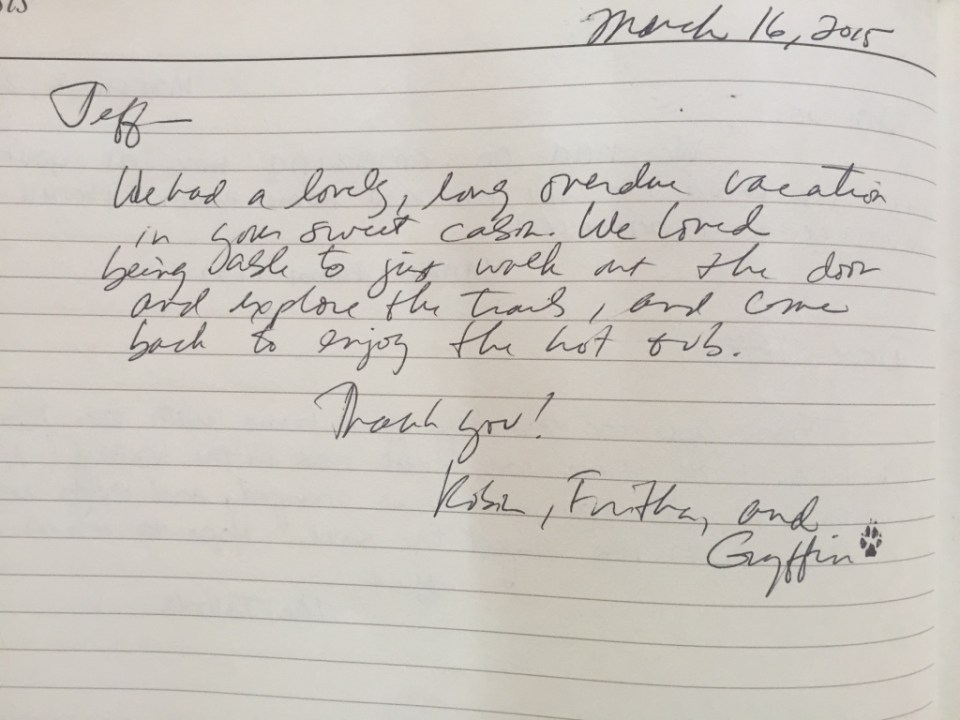 March 16, 2015
Jeff
We had a lovely, long overdue vacation
in your sweet cabin. We loved
being able to just walk out the door
and explore the trails, and come
back to enjoy the hot tub.
Thank you!
Robin, and
Gryffin